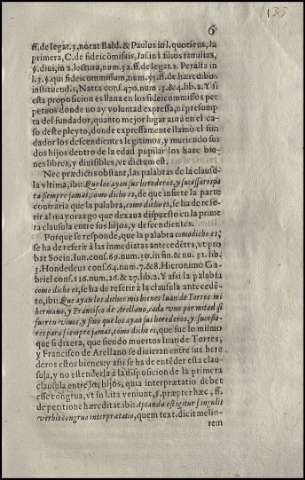 6
ff. de legat. 3. notat Bald. & Paulus in l. quoties, la
primera, C. de fideicõmissis, Ias. in l. filius familias,
§. diui, in 2. lectura, num. 52. ff. de legat. 1. Peralta in
l. 3. §. qui fideicommissum, num. 93. ff. de hæredibus
instituendis, Natta cons. 470. num. 3. & 4. lib. 2. Y si
esta proposicion es llana en los fideicomissos per
petuos donde no ay voluntad expressa, ni presump
ta del fundador, quanto mejor lugar aurà en el ca-
so deste pleyto, donde expressamente llamò el fun
dador los descendientes legitimos, y muriendo sus
dos hijos dentro de la edad pupilar los hizo bie-
nes libres, y diuisibles, vt dictum est.
Nec prædictis obstant, las palabras de la clausu-
la vltima, ibi: Que los ayan sus herederos, y sucessores pa
ra siempre jamas, como dicho es, de que infiere la parte
contraria que la palabra, como dicho es, se ha de refe-
rir al mayorazgo que dexaua dispuesto en la prime
ra clausula entre sus hijos, y descendientes.
Porque se responde, que la palabra como dicho es,
se ha de referir à las immediatas antecedẽtes, vt pro
bat Socin. Iun. cons. 69. num. 30. in fin. & nu. 31. lib.
3. Hondedeus cons. 64. num. 7. & 8. Hieronimo Ga-
briel cons. 116. num. 26. & 27. lib. 2. Y assi la palabra
como dicho es, se ha de referir à la clausula antecedẽ-
te, ibi: Que ayan los dichos mis bienes Iuan de Torres mi
hermano, y Francisco de Arellano, cada vno por mitad si
fueren viuos, y sino que los ayan sus herederos, y sucesso-
res para siempre jamas, como dicho es, que fue lo mismo
que si dixera, que siendo muertos Iuan de Torres,
y Francisco de Arellano se diuidieran entre sus here
deros estos bienes y assi se ha de entẽder esta clau-
sula, y no estenderla à la disposicion de la primera
clausula entre sus hijos, quia interpretatio debet
esse congrua, vt in lata veniunt, §. præter hæc, ff.
de petitione hæreditat. ibi: Aptanda est igitur singulis
verbis congrua interpretatio, quem text. dicit melio-
rem